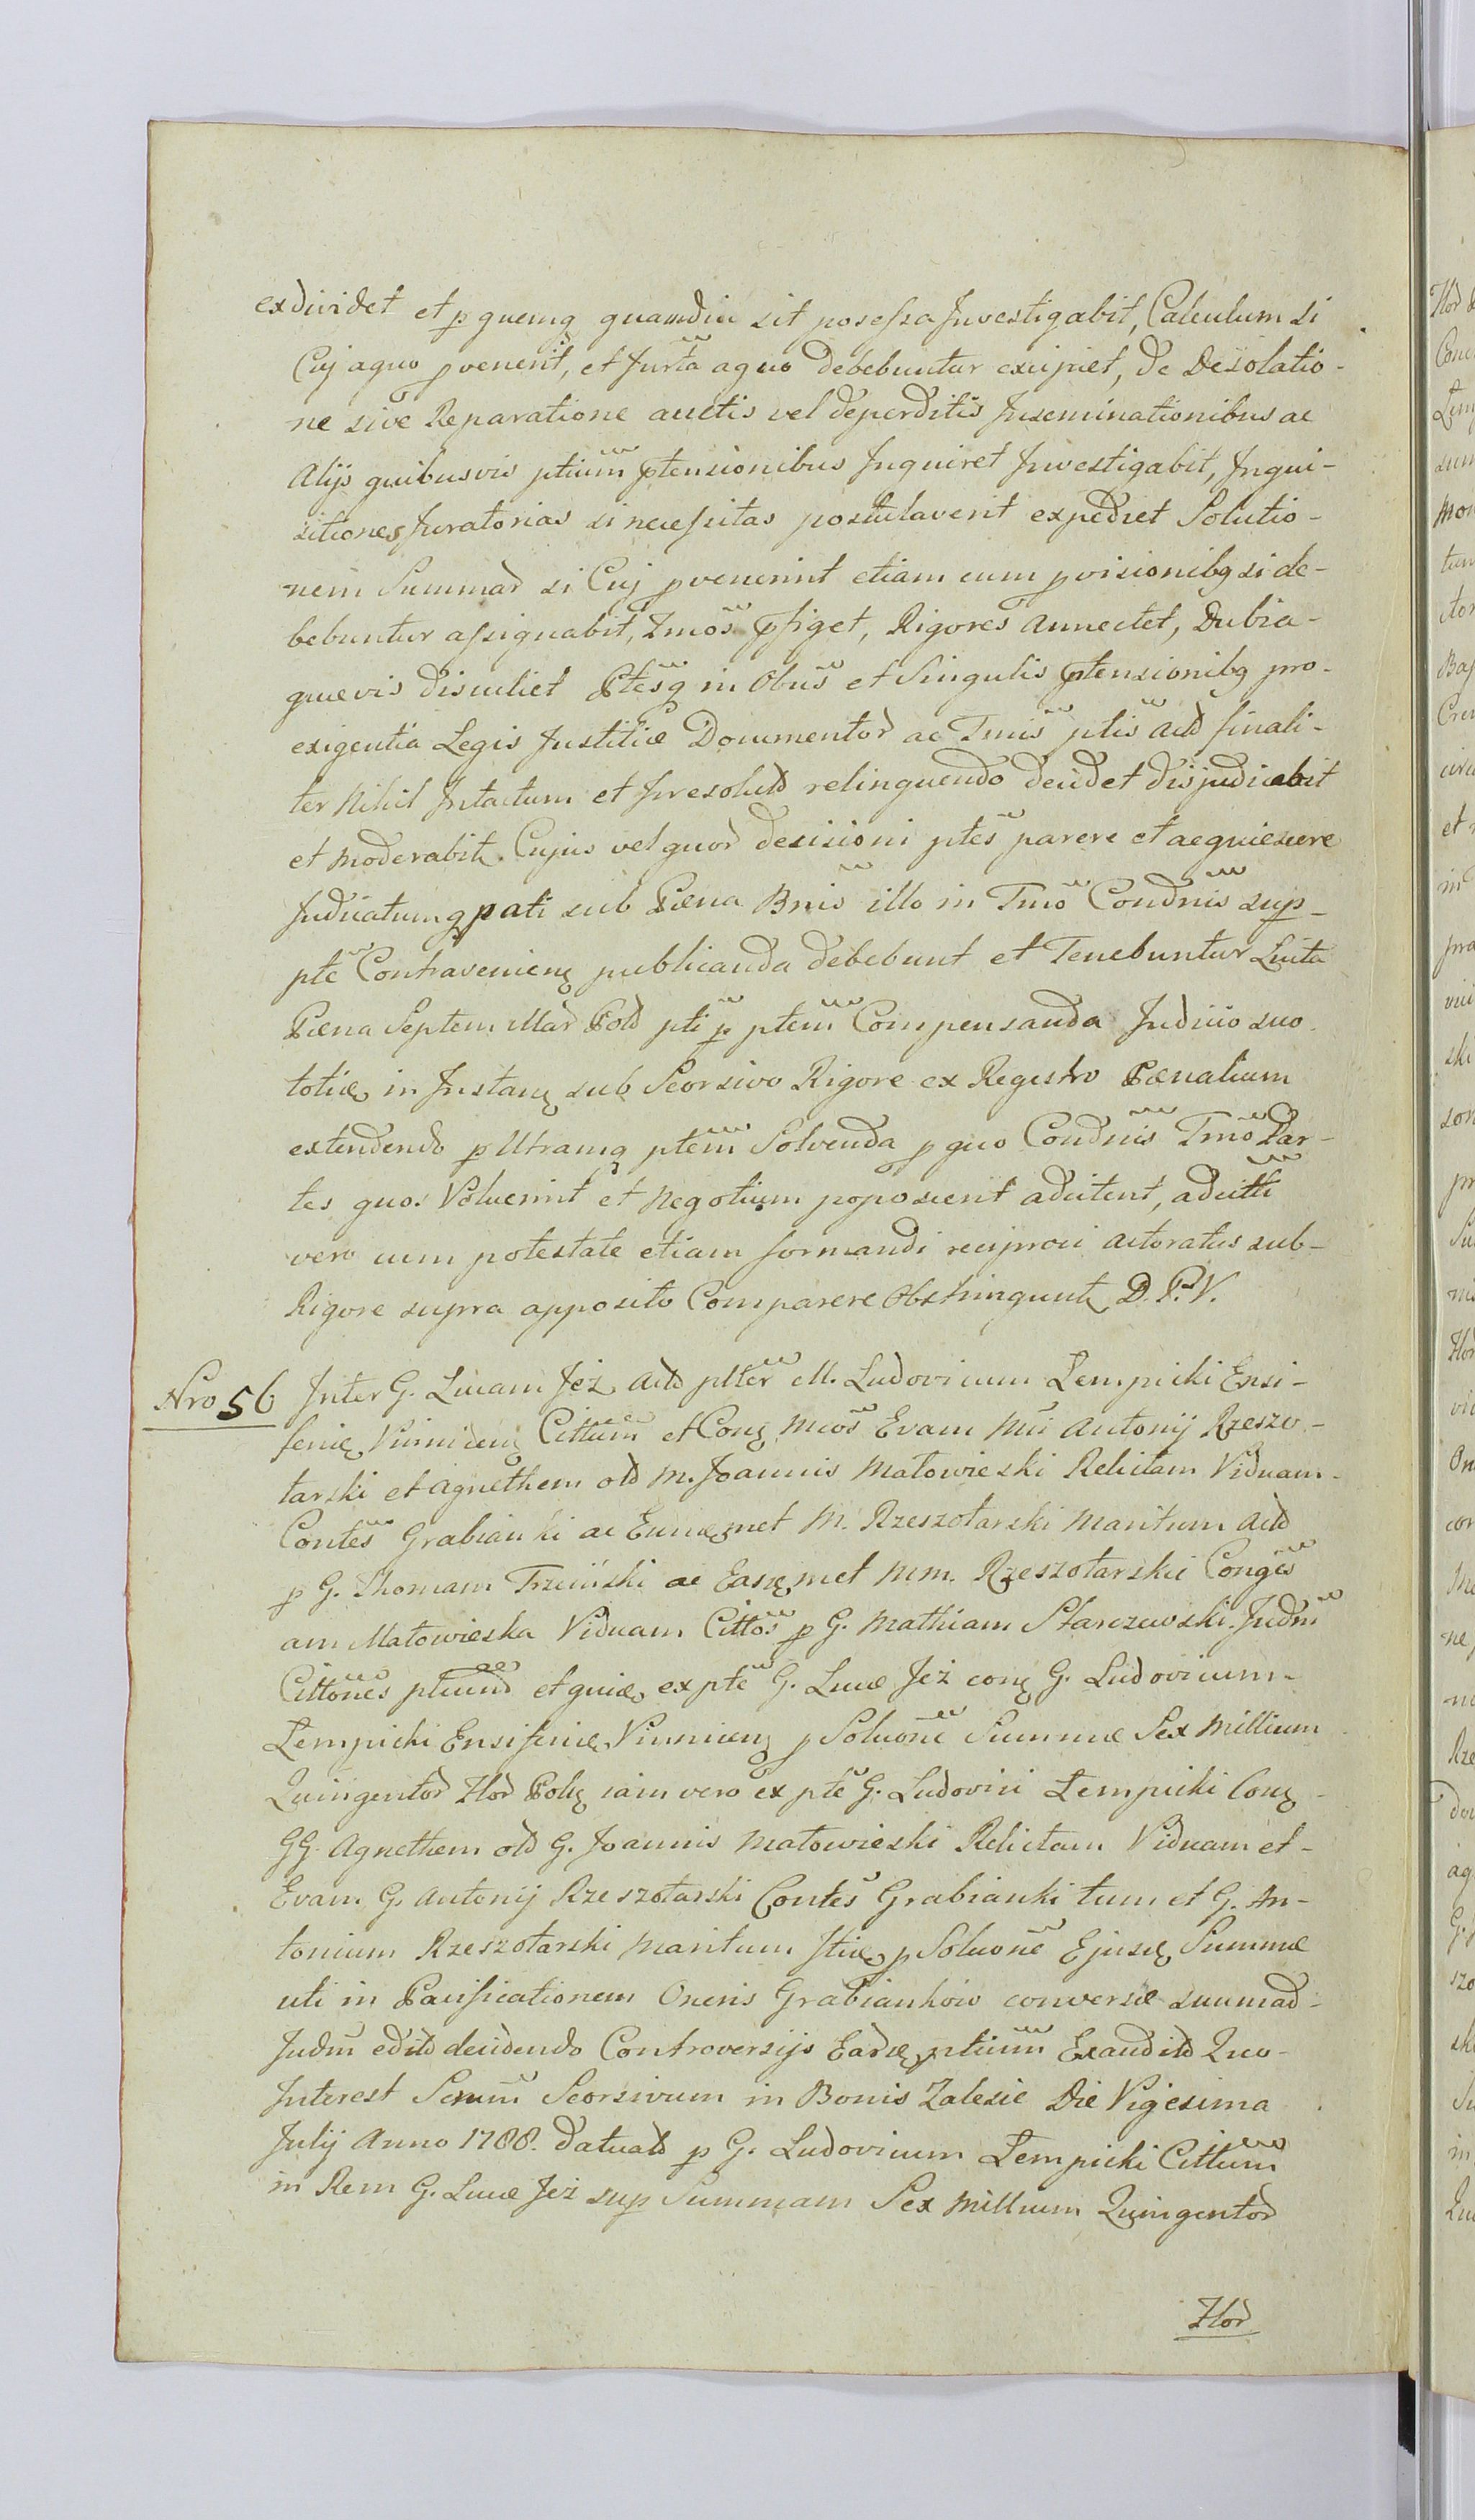 exdividet et p quemq quamdiu sit posessa Investigabit, Calculum si
Cuj aquo pvenerit, et Jurta aquo debebuntur excipiet, de Desolatio-
ne sive Reparatione auctis vel deperditis Inseminationibus ac
Alijs quibusvis ptium ptensionibus Inquiret Investigabit, Inqui-
sitiones Juratorias si necessitas postulaverit expediet Solutio-
nem Summar si Cuj pvenerint etiam cum pvisionibq si de-
bebuntur assignabit, Tmos pfiget, Rigores Annectet, Dubia-
quaevis discutiet Ptesq in Obus et Singulis ptensionibq pro-
exigentia Legis Justitiæ Documentor ac Tmis ptis Actd finali-
ter Nihil Intactum et Iresolutd relinquendo decidet disjudicabit
et moderabit. Cujus vel quor decisioni ptes parere et acquiescere
Judicatumq pati sub Pæna Bnis illo in Tmo Condnis sup-
pte Contravenienz publicanda debebunt et Tenebuntur Luita
Pæna Septem Mar Pold pti p ptem Compensanda Judicio suo
toties in Instanz sub Seorsivo Rigore ex Regestro Pænalium
extendendo p Utramq ptem Solvenda p quo Condnis Tmo Par-
tes quos Voluerint et Negotium poposcerit adcitent, adcitti
vero cum potestate etiam formandi reciproci Actoratus sub-
Rigore supra apposito Comparere Obstringunt D. P. V.
Nro 56 Inter G. Lucam Jeż Actd ptter M. Ludovicum Łempicki Ensi-
feriæ Vinnicenz Cittum et Conz Mcos Evam Mci Antonij Rzeszo-
tarski et Agnethem old M. Joannis Matowieski Relictam Viduam-
Contes Grabianki ac Eundmet M. Rzeszotarski Maritum Actd
p G. Thomam Trzcinski ac Easdmet Mm. Rzeszotarskie Conges
am Matowieska Viduam Cittos p G. Mathiam Starczewski. Judm
Cittones ptiumd et quia ex pte G. Lucæ Jeż conz G. Ludovicum-
Łempicki Ensiferiæ Vinnicenz p Soluone Summæ Sex Millium
Quingentor Flor Polz iam vero ex pte G. Ludovici Łempicki Conz-
GG. Agnethem old G. Joannis Matowieski Relictam Viduam et-
Evam G. Antonij Rzeszotarski Contes Grabianki tum et G. An-
tonium Rzeszotarski Maritum Itiæ p Soluone Ejusd Summæ
uti in Pacificationem Oneris Grabiankow conversæ summad-
Judm editd decidendo Controversijs Eard ptium Exauditd Quo-
Interest Scrum Seorsivum in Bonis Zalesie Die Vigesima
Julij Anno 1788. datuald p G. Ludovicum Łempicki Cittum
in Rem G. Lucæ Jeż sup Summam Sex Millium Quingentor
Flor